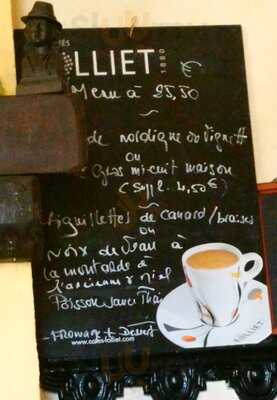 CAFÉS
FOLLIET
1880
Menu à 25,50 €
de nordique ou vignette
ou
Gras mi cuit maison
(Suppl. 4,50€)
Aiguillettes de canard/braisés
ou
Noix de Veau à
la moutarde à
l'ancienne & miel
Poisson sauce Thaï
Fromage + Dessert
www.cafes-folliet.com
FOLLIET